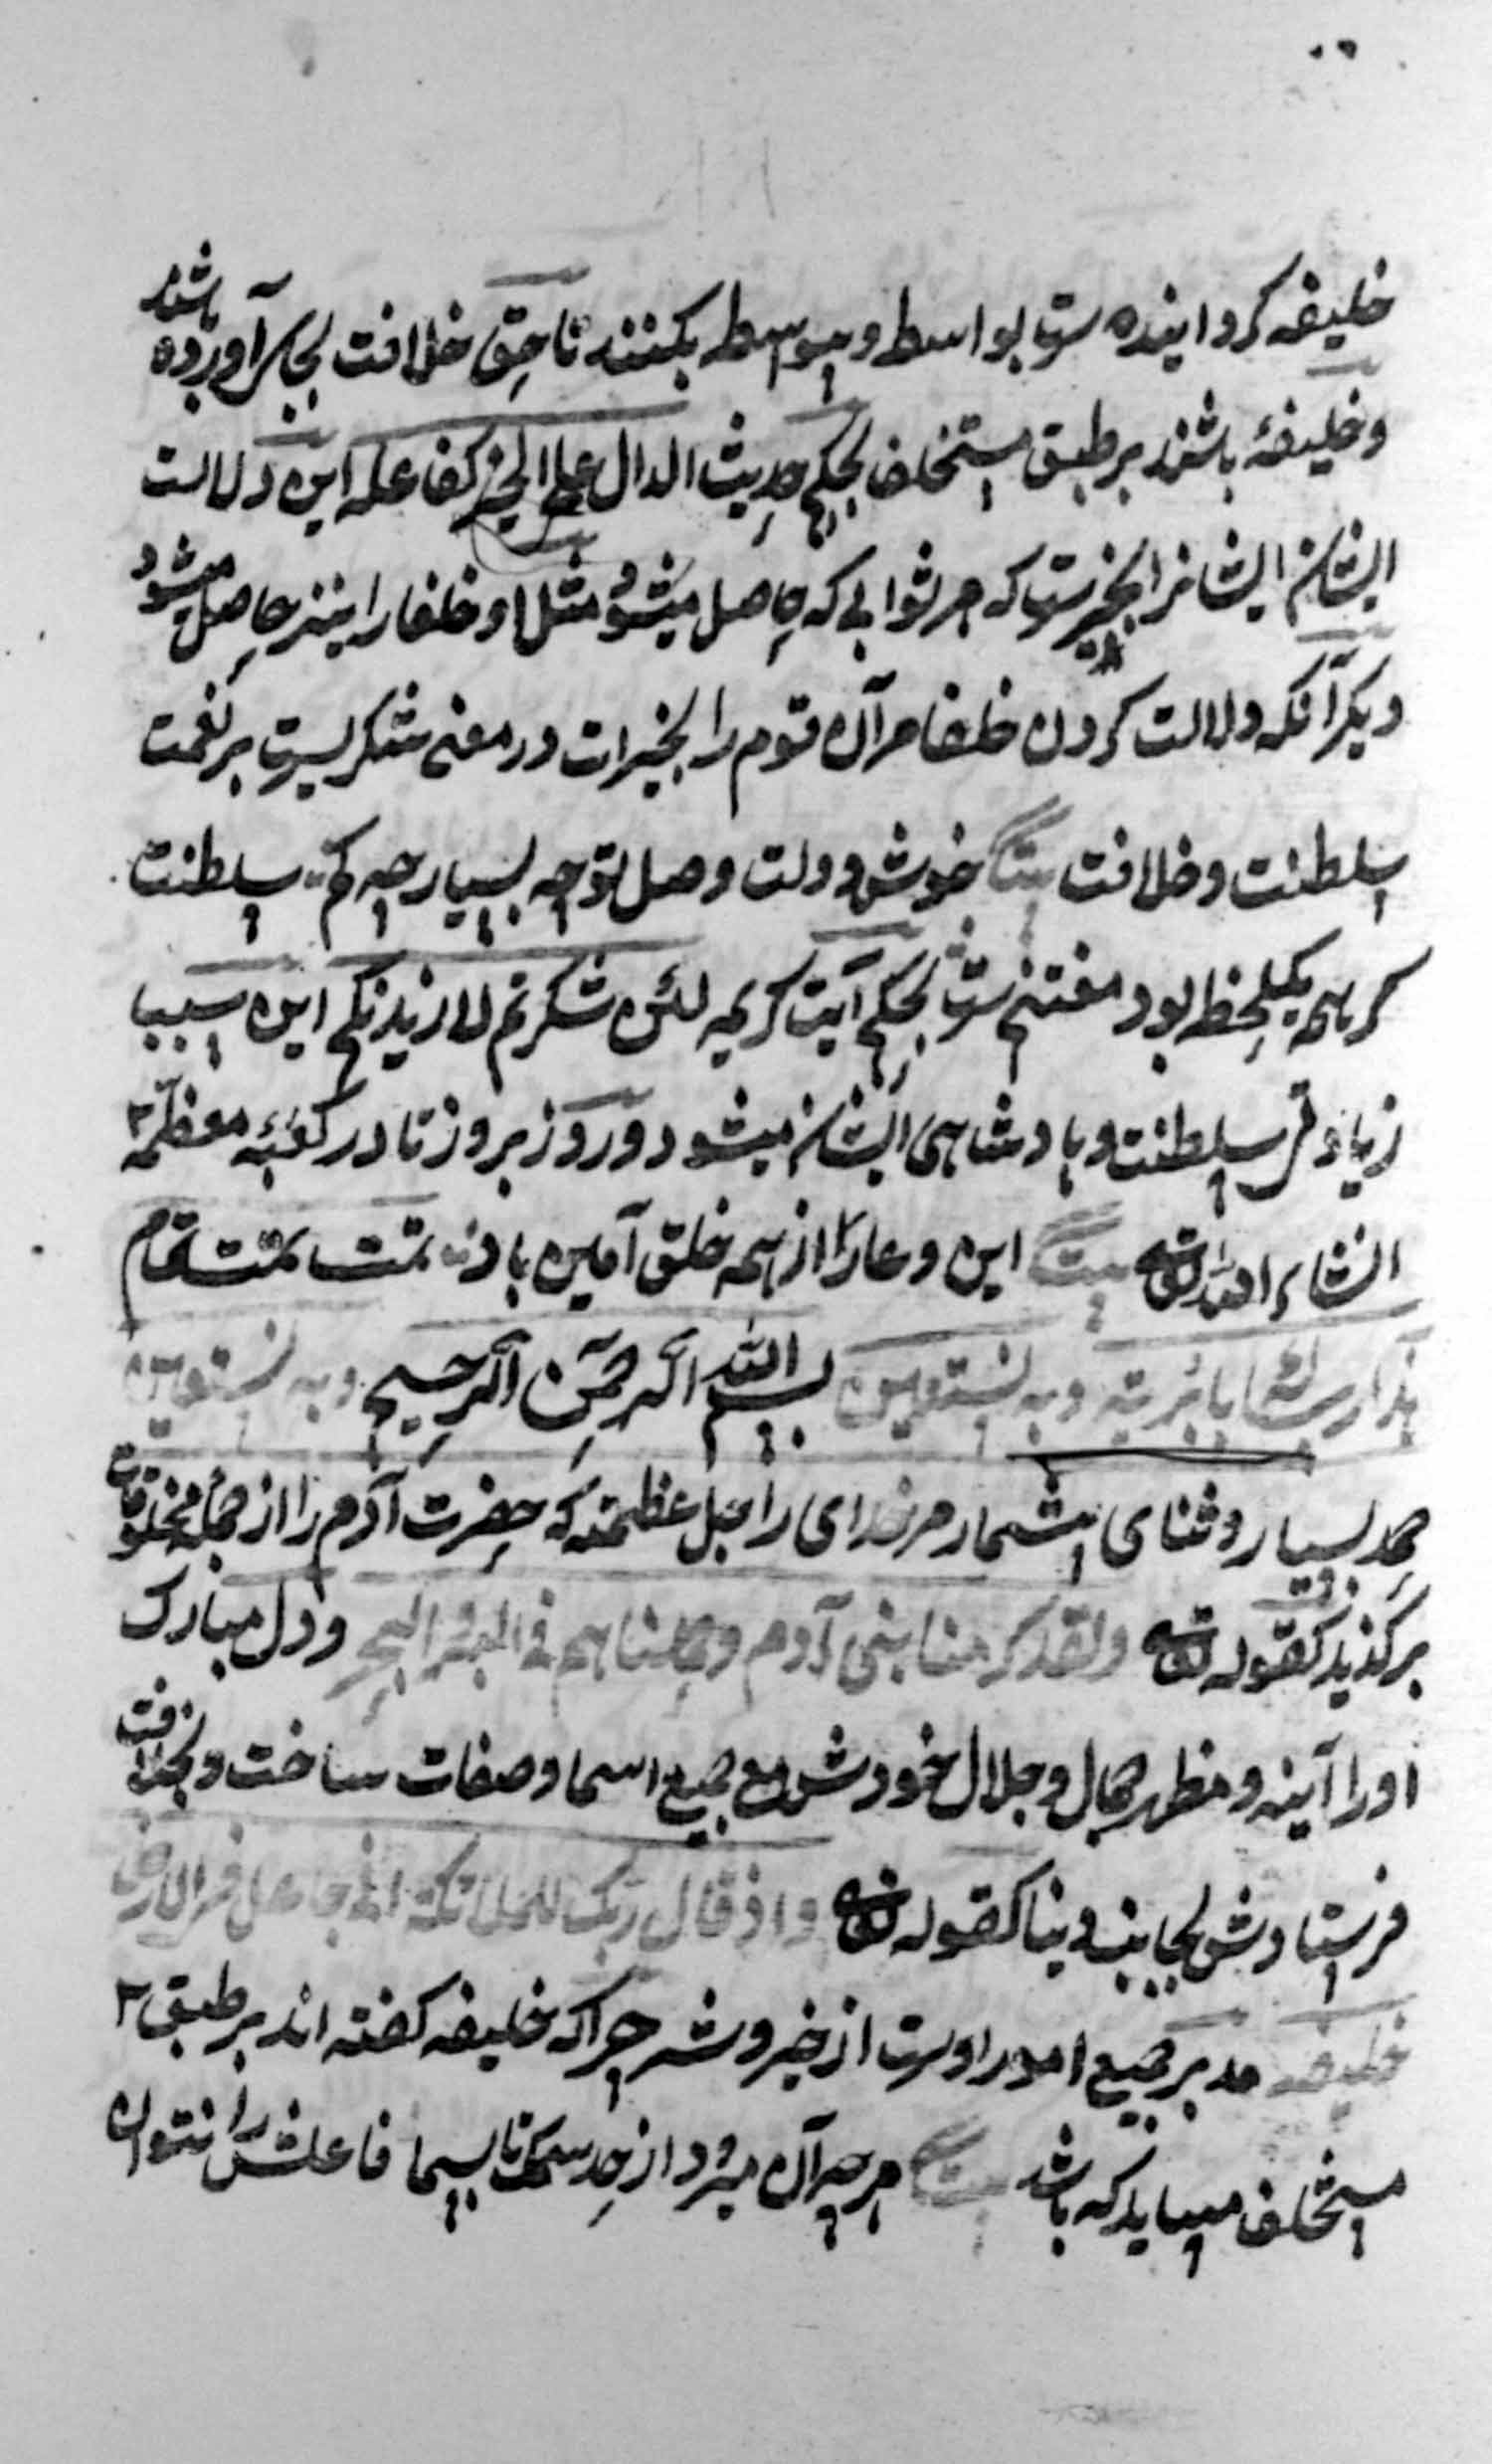 خلیفه کردانیده است بواسط و بیواسطه بکنند تا حق خلافت بجای آورده باشند
و خلیفهٔ باشند بر طبق مستخلف بحکم حدیث الدال علی الخیر کفاعله این دلالت
ایشان ایشانرا بخیرست که هر ثوابی که حاصل میشود مثل او خلفا را نیز حاصل میشود
دیکر آنکه دلالت کردن خلفا مر آن قوم را بخیرات در معنی شکریست بر نعمت
سلطنت و خلافت بیت خوش دولت وصل تو چه بسیار چه کم سلطنت
کر همه یکلحظه بود مغتنم است بحکم آیت کریمه لئن شکرتم لازیدنکم این سبب
زیادتی سلطنت و بادشاهی ایشان میشود و روز بروز تا در کعبهٔ معظمه
انشاء الله تعالی بیت این دعا را از همه خلق آمین باد تمت تمت تمام
هذا رسالهٔ بابریه و به نستعین بسم الله الرحمن الرحیم و به نستعین
حمد بسیار و ثنای بیشمار مر خدای را جل عظمته که حضرت آدم را از جمله مخلوقات
برکذید کقوله تعالی ولقد کرمنا بنی آدم وحملناهم فی البر والبحر و دل مبارک
او را آینه و مظهر جمال و جلال خودش مع جمیع اسما و صفات ساخت و بخلافت
فرستادش بجانب دنیا کقوله تعالی و اذ قال ربک للملائکة انی جاعل فی الارض
خلیفه مدبر جمیع امور اوست از خیر و شر چراکه خلیفه کفته اند بر طبق
مستخلف میباید که باشد بیت هر چه آن میرود از حد سمک تا بسما فاعلش را نتوان